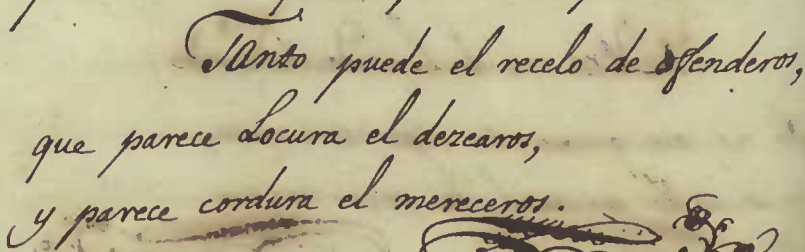 Tanto puede el recelo de ofenderos,
que parece Locura el dezearos,
y parece cordura el mereceros.